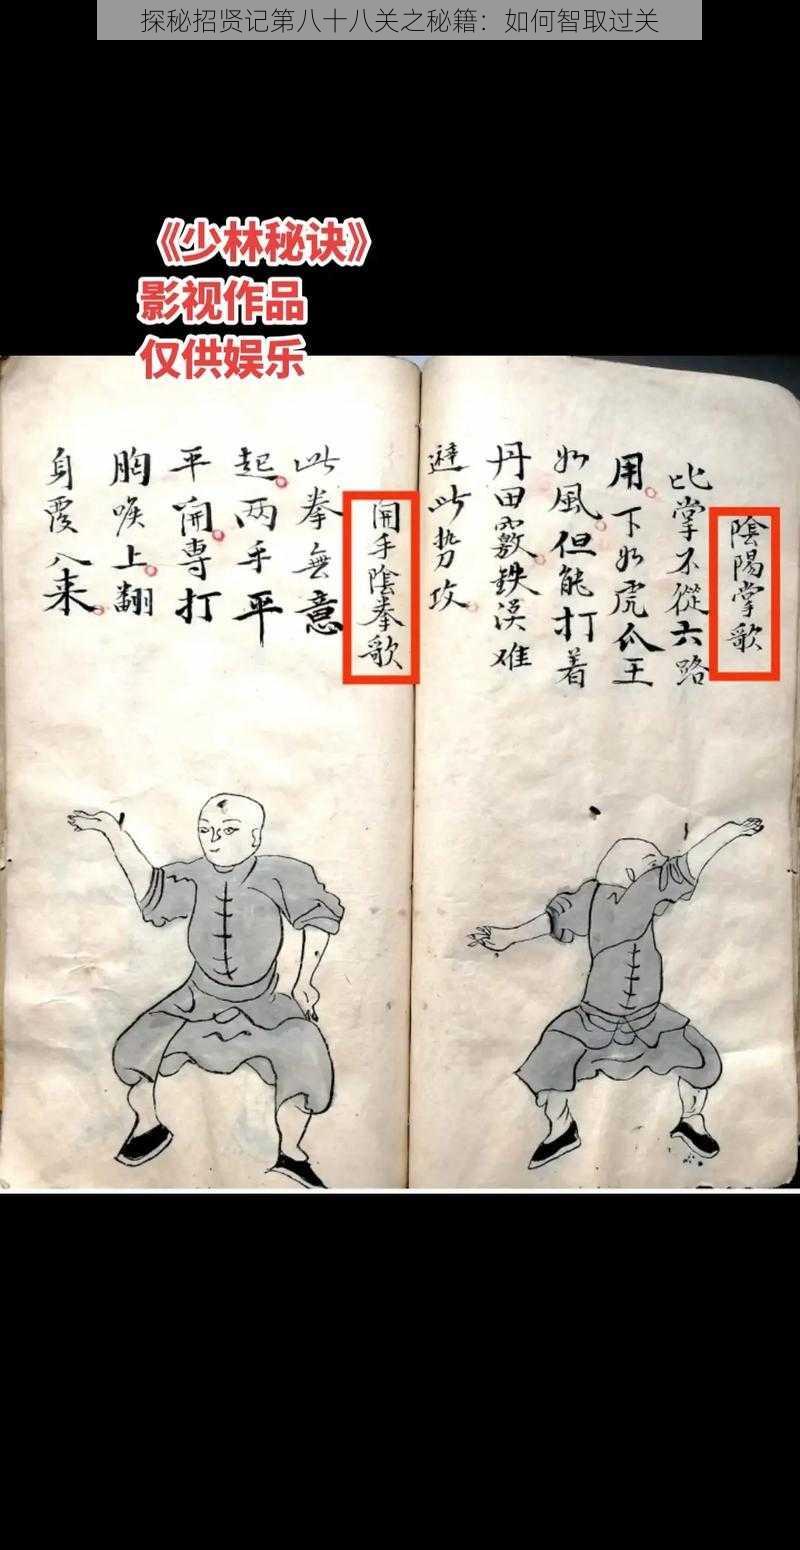 探秘招贤记第八十八关之秘籍：如何智取过关
《少林秘诀》
影视作品
仅供娱乐
陰陽掌歌
此掌不從六路
用下如虎爪王
如風但能打着
丹田竅鉄漢难
避此势攻
開手陰拳歌
此拳無意
起两手平
平開專打
胸喉上翻
身覆入来